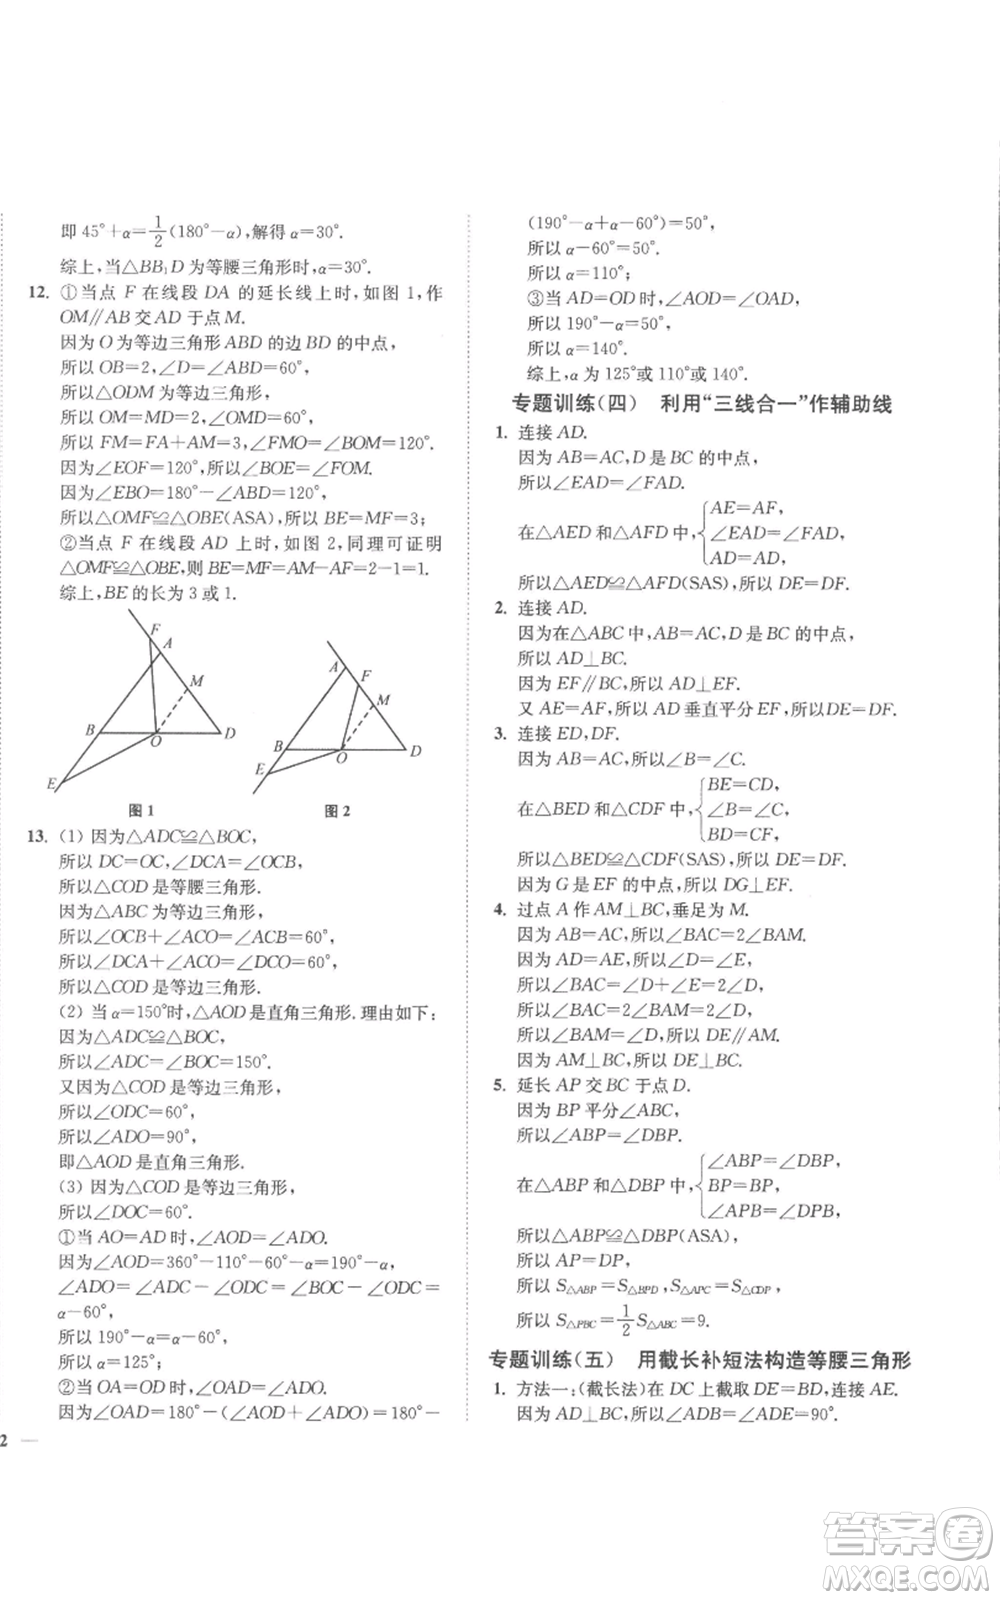 即45°+α=1/2(180°-α),解得α=30°.
综上,当△BB₁D为等腰三角形时,α=30°.
12. ①当点F在线段DA的延长线上时,如图1,作
OM∥AB交AD于点M.
因为O为等边三角形ABD的边BD的中点,
所以OB=2,∠D=∠ABD=60°,
所以△ODM为等边三角形,
所以OM=MD=2,∠OMD=60°,
所以FM=FA+AM=3,∠FMO=∠BMO=120°.
因为∠EOF=120°,所以∠BOE=∠FOM.
因为∠EBO=180°-∠ABD=120°,
所以△OMF≌△OBE(ASA),所以BE=MF=3;
②当点F在线段AD上时,如图2,同理可证明
△OMF≌△OBE,则BE=MF=AM-AF=2-1=1.
综上,BE的长为3或1.
F
A
M
B
O
D
E
图1
A
F
M
B
O
D
E
图2
13. (1) 因为△ADC≌△BOC,
所以DC=OC,∠DCA=∠OCB,
所以△COD是等腰三角形.
因为△ABC为等边三角形,
所以∠OCB+∠ACO=∠ACB=60°,
所以∠DCA+∠ACO=∠DCO=60°,
所以△COD是等边三角形.
(2) 当α=150°时,△AOD是直角三角形.理由如下:
因为△ADC≌△BOC,
所以∠ADC=∠BOC=150°.
又因为△COD是等边三角形,
所以∠ODC=60°,
所以∠ADO=90°,
即△AOD是直角三角形.
(3) 因为△COD是等边三角形,
所以∠DOC=60°.
①当AO=AD时,∠AOD=∠ADO.
因为∠AOD=360°-110°-60°-α=190°-α,
∠ADO=∠ADC-∠ODC=∠BOC-∠ODC=
α-60°,
所以190°-α=α-60°,
所以α=125°;
②当OA=OD时,∠OAD=∠ADO.
因为∠OAD=180°-(∠AOD+∠ADO)=180°-
2
(190°-α+α-60°)=50°,
所以α-60°=50°.
所以α=110°;
③当AD=OD时,∠AOD=∠OAD,
所以190°-α=50°,
所以α=140°.
综上,α为125°或110°或140°.
专题训练(四) 利用“三线合一”作辅助线
1. 连接AD.
因为AB=AC,D是BC的中点,
所以∠EAD=∠FAD.
在△AED和△AFD中,{AE=AF,
∠EAD=∠FAD,
AD=AD,
所以△AED≌△AFD(SAS),所以DE=DF.
2. 连接AD.
因为在△ABC中,AB=AC,D是BC的中点,
所以AD⊥BC.
因为EF∥BC,所以AD⊥EF.
又AE=AF,所以AD垂直平分EF,所以DE=DF.
3. 连接ED,DF.
因为AB=AC,所以∠B=∠C.
在△BED和△CDF中,{BE=CD,
∠B=∠C,
BD=CF,
所以△BED≌△CDF(SAS),所以DE=DF.
因为G是EF的中点,所以DG⊥EF.
4. 过点A作AM⊥BC,垂足为M.
因为AB=AC,所以∠BAC=2∠BAM.
因为AD=AE,所以∠D=∠E,
所以∠BAC=∠D+∠E=2∠D,
所以∠BAM=∠D,所以DE∥AM.
因为AM⊥BC,所以DE⊥BC.
5. 延长AP交BC于点D.
因为BP平分∠ABC,
所以∠ABP=∠DBP.
在△ABP和△DBP中,{∠ABP=∠DBP,
BP=BP,
∠APB=∠DPB,
所以△ABP≌△DBP(ASA),
所以AP=DP.
所以S△ABP=S△BPD,S△APC=S△CDP,
所以S△PBC=1/2S△ABC=9.
专题训练(五) 用截长补短法构造等腰三角形
1. 方法一:(截长法)在DC上截取DE=BD,连接AE.
因为AD⊥BC,所以∠ADB=∠ADE=90°.
答案卷
WWW.MXQE.COM